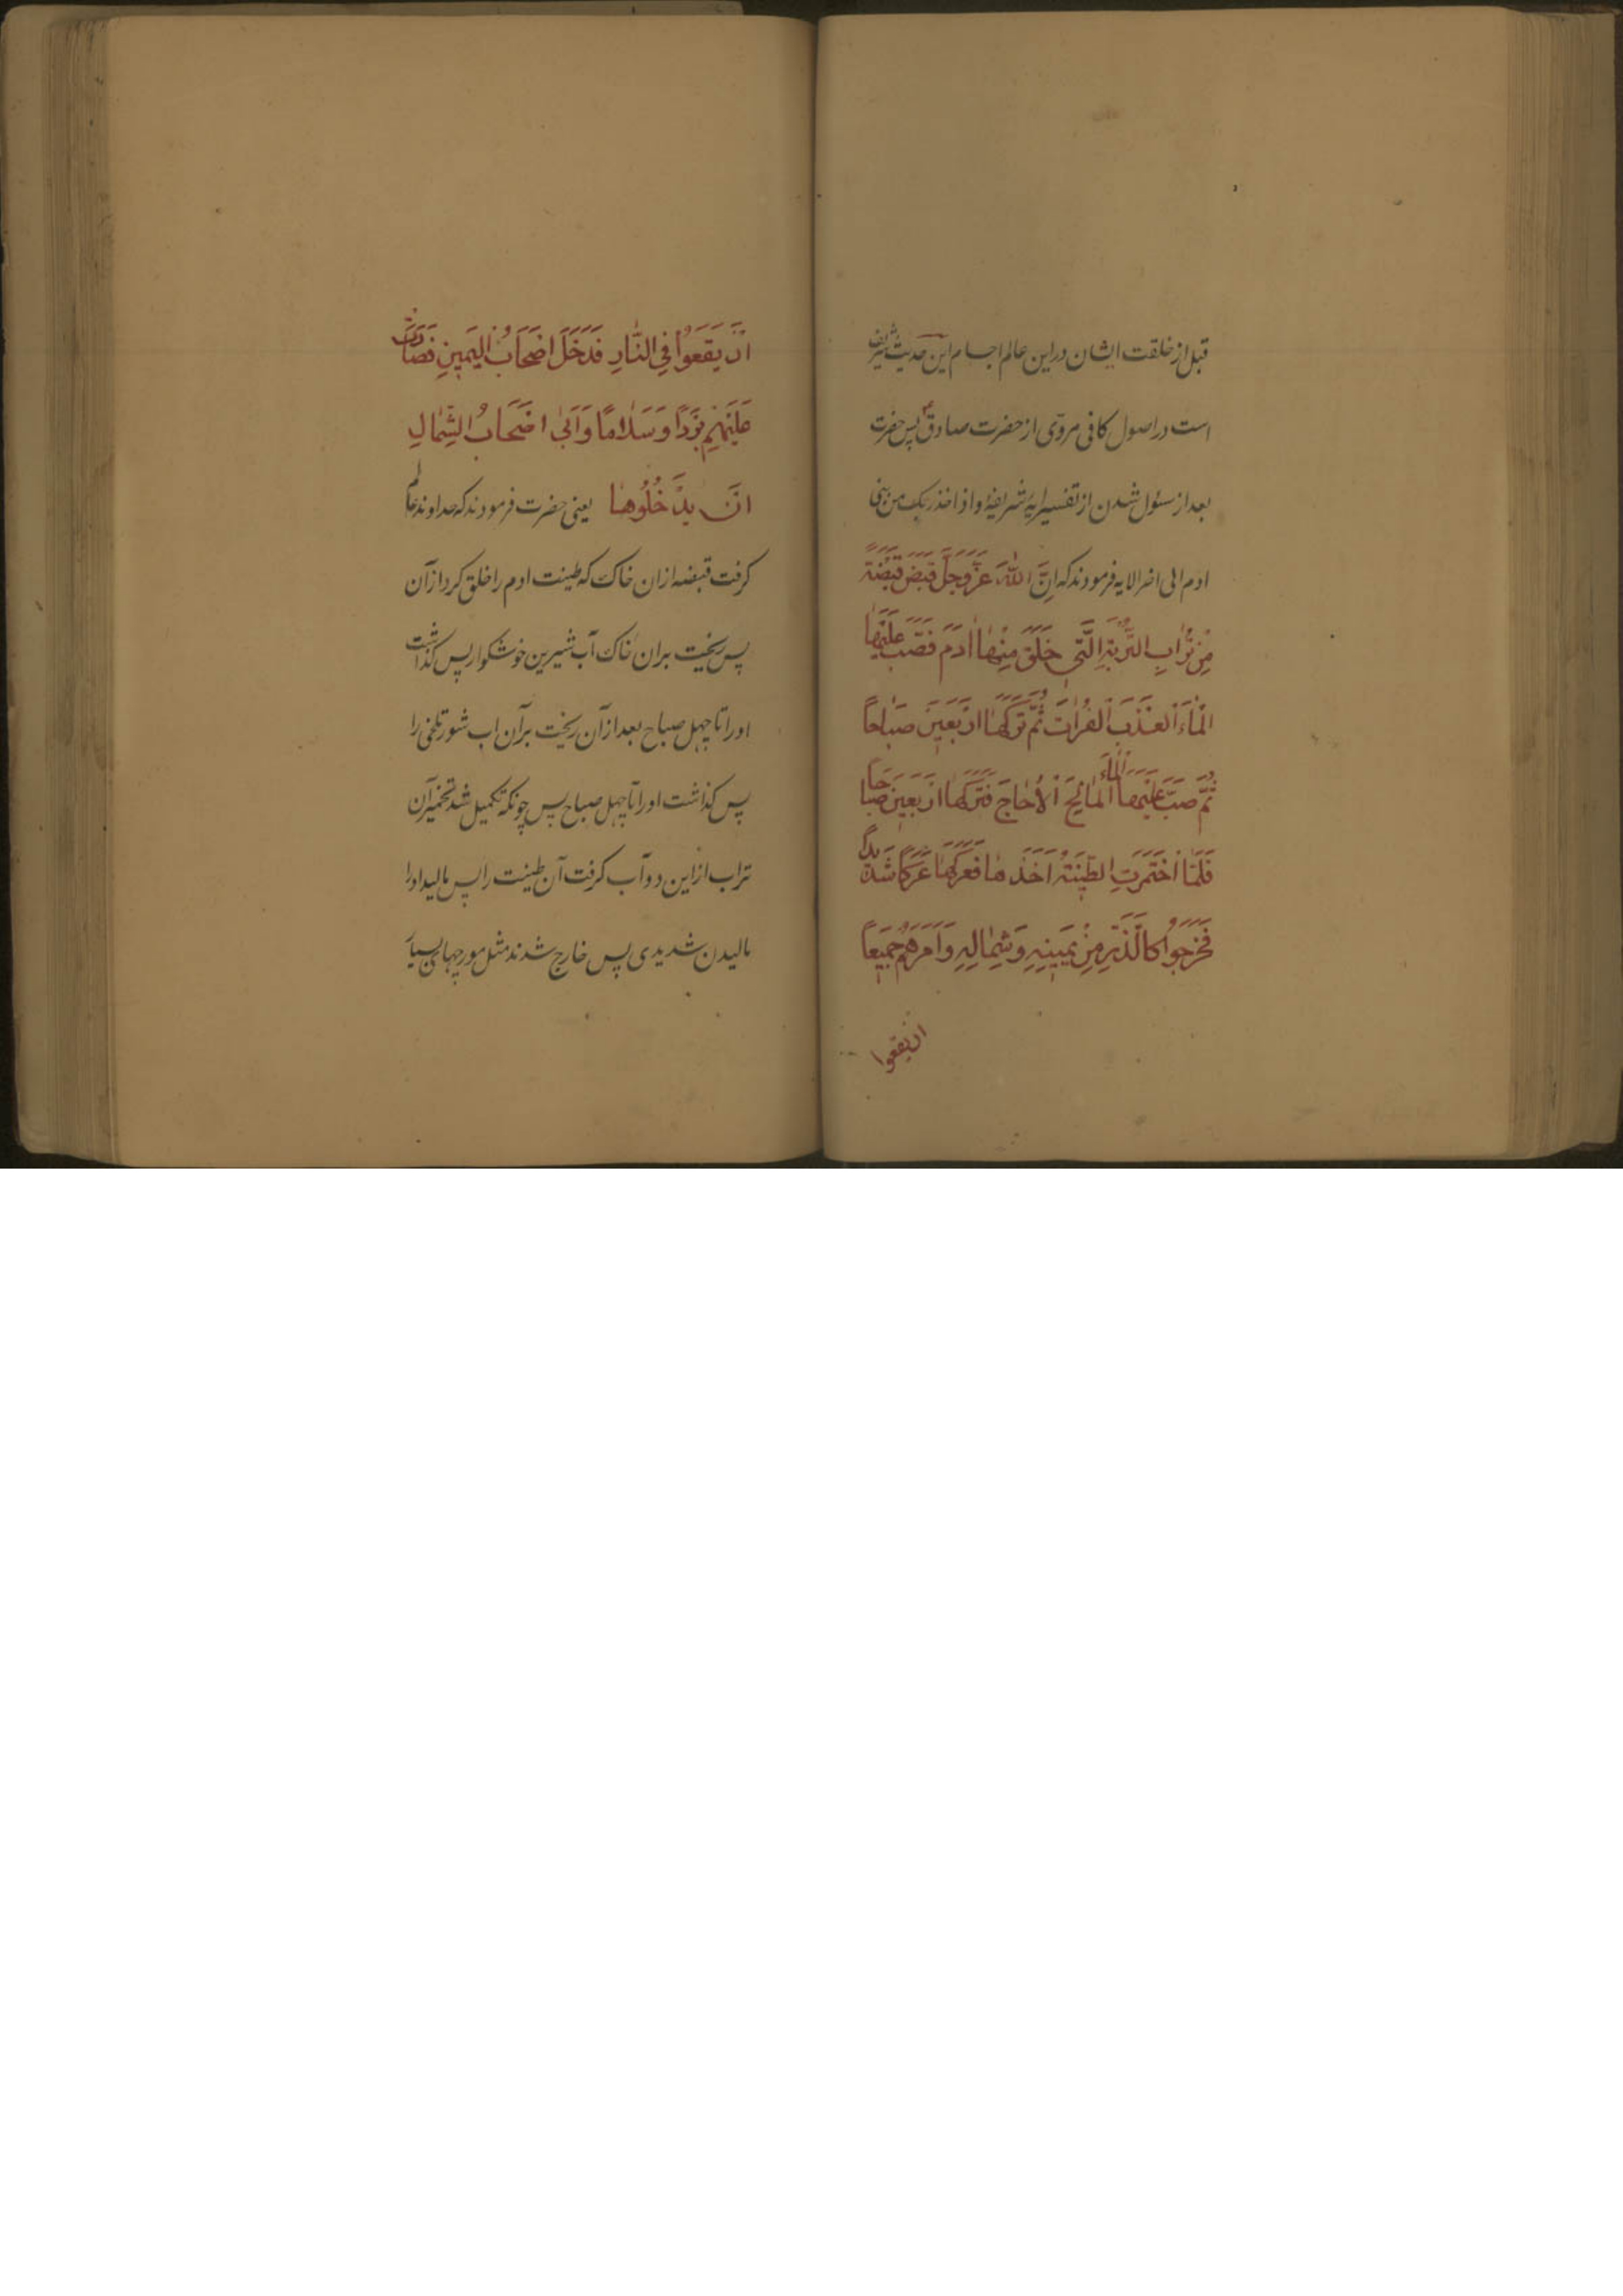 قبل از خلقت ایشان در این عالم اجسام این حدیث شریف
است در اصول کافی مروی از حضرت صادق ع پس حضرت
بعد از سئول شدن از تفسیر ایه شریفه و اذ اخذ ربک من بنی
ادم الی اخر الایه فرمودند که اِنَّ اللّٰهَ عَزَّ وَجَلَّ قَبَضَ قَبْضَةً
مِنْ تُرابِ التُّرْبَةِ الَّتی خَلَقَ مِنْها ادَمَ فَصَبَّ عَلَیْها
الْماءَ الْعَذْبَ الْفُراتَ ثُمَّ تَرَکَها اَرْبَعینَ صَباحاً
ثُمَّ صَبَّ عَلَیْهَا الْماءَ الْمالِحَ الْاُجاجَ فَتَرَکَها اَرْبَعینَ صَباحاً
فَلَمَّا اخْتَمَرَتِ الطّینَةُ اَخَذَها فَعَرَکَها عَرْکاً شَدیداً
فَخَرَجُوا کَالذَّرِّ مِنْ یَمینِهِ وَ شِمالِهِ وَ اَمَرَهُمْ جَمیعاً
ان یقعوا
اَنْ یَقَعُوا فِی النّارِ فَدَخَلَ اَصْحابُ الْیَمینِ فَصارَتْ
عَلَیْهِمْ بَرْداً وَ سَلاماً وَ اَبیٰ اَصْحابُ الشِّمالِ
اَنْ یَدْخُلُوها یعنی حضرت فرمودند که خداوند عالم
کرفت قبضه از ان خاک که طینت ادم را خلق کرد از آن
پس ریخت بر ان خاک آب شیرین خوشکوار پس کذاشت
او را تا چهل صباح بعد از آن ریخت بر آن اب شور تلخی را
پس کذاشت او را تا چهل صباح پس چونکه تکمیل شد تخمیر آن
تراب از این دو آب کرفت آن طینت را پس مالید او را
مالیدن شدیدی پس خارج شدند مثل مورچهای